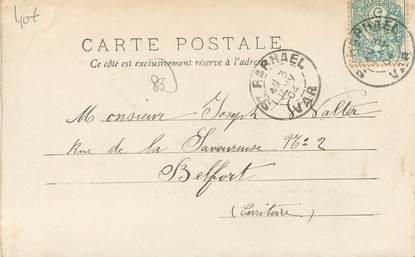 40€
CARTE POSTALE
Ce côté est exclusivement réservé à l'adresse
83
ST RAPHAEL
VAR
Monsieur Joseph Walter
Rue de la Savoureuse No 2
Belfort
(Territoire)